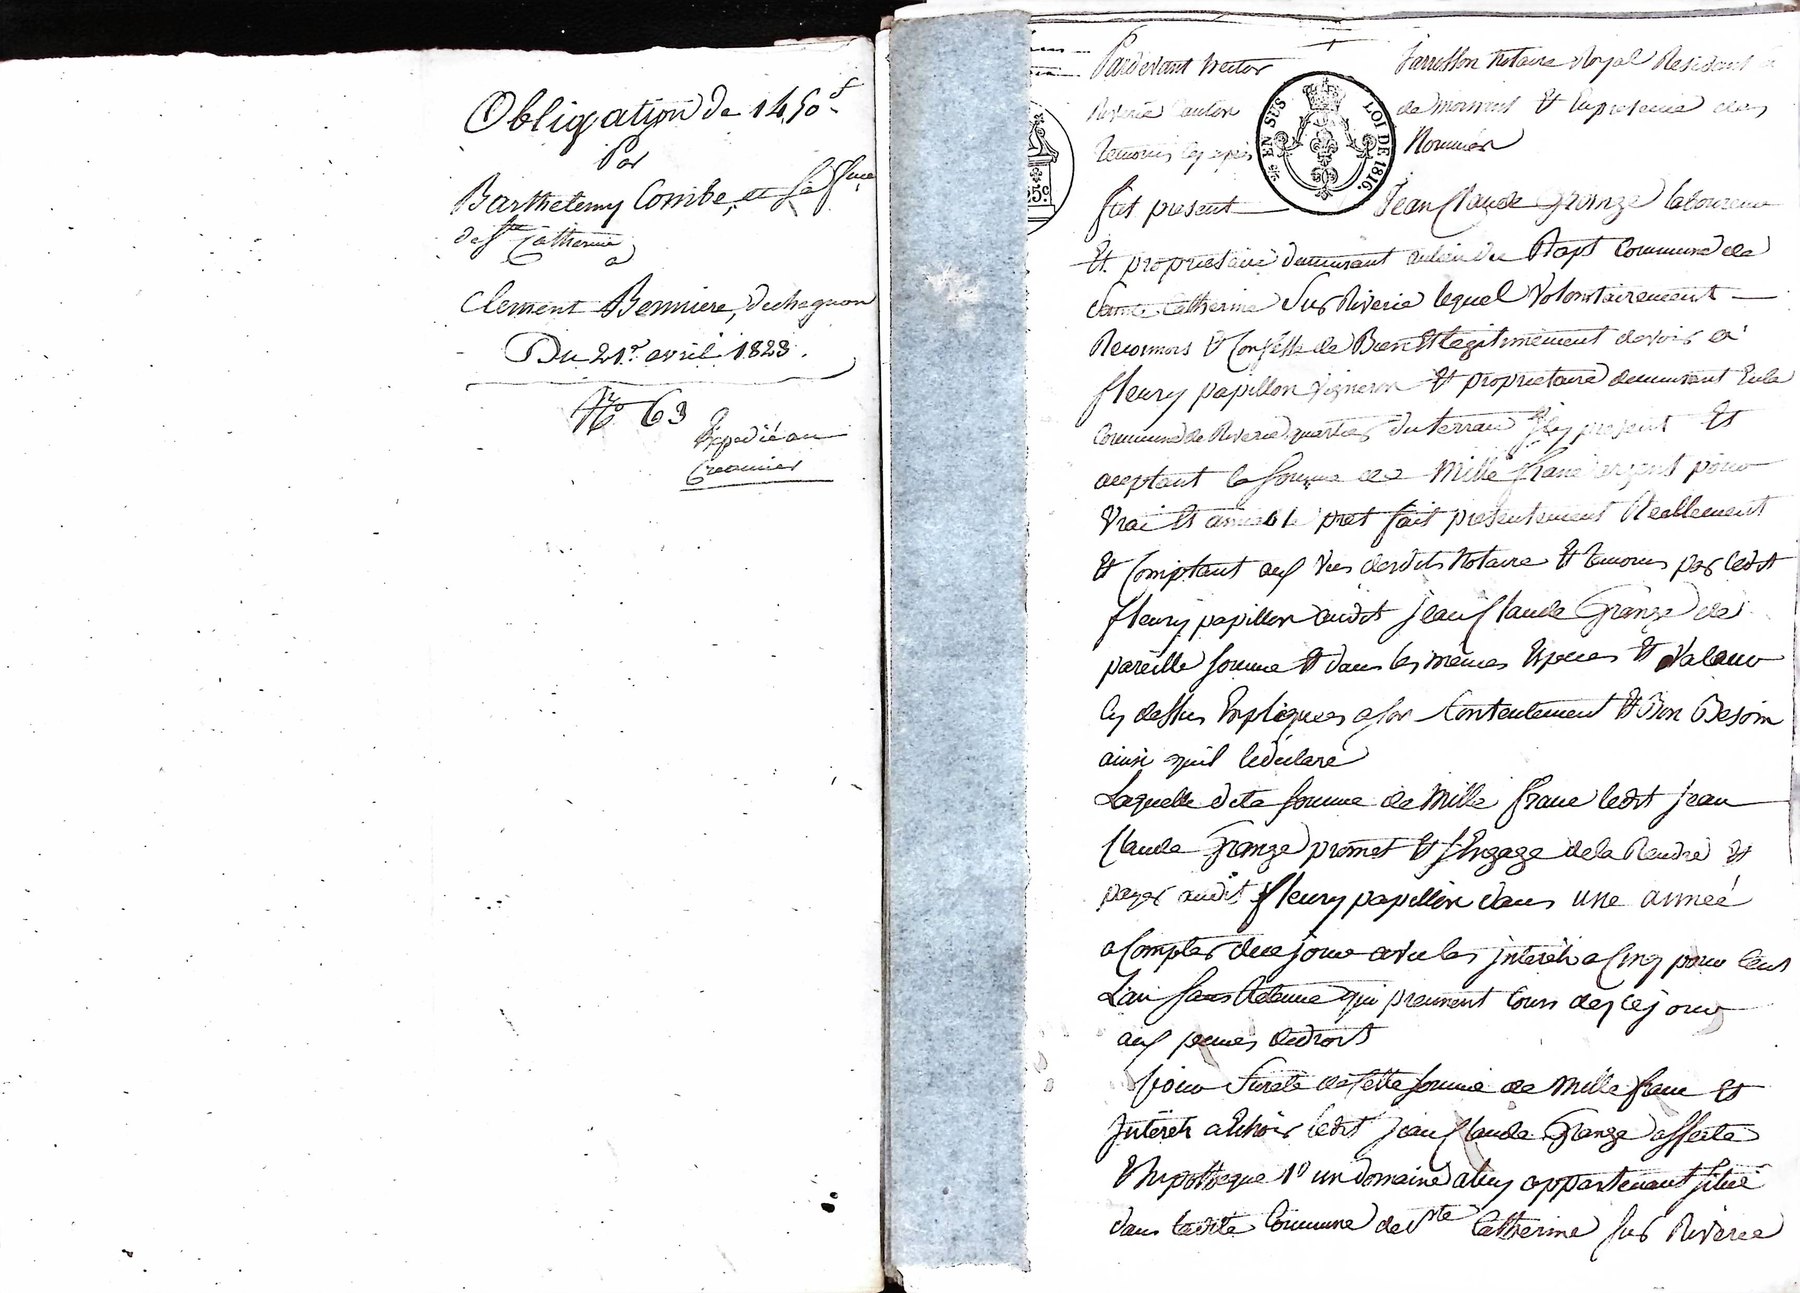 Obligation de 1450f
Par
Barthelemy Combe, et sa fme
de Ste Catherine
a
Clement Benniere, de chagnon
Du 21r avril 1823.
No 63
Expedié au
Creancier
Pardevant hector Jarrosson Notaire Royal Resident a
Riverie canton de mornant Et En presence des
temoins cy apres Nommés
fut present Jean Claude Grange laboureur
Et proprietaire demeurant au lieu du Commune de
Sainte Catherine Sur Riverie lequel Volontairement
Reconnois & Confesse de Bien Et legitimement devoir a
fleury papillon vigneron Et proprietaire demeurant En la
Commune de Riverie quartier du terrau icy present Et
aceptant la somme de Mille franc argent pour
Vrai Et amiable pret fait presentement Reellement
Et Comptant aux vues desdits Notaire Et temoins par ledit
fleury papillon audit jean Claude Grange de
pareille somme Et dans les mêmes Especes Et Valeur
Cy dessus Expliquées a son Contentement Et Bon Besoin
ainsi quil le declare
Laquelle dite somme de Mille franc ledit jean
Claude Grange promet Et sEngage de la Rendre Et
payer audit fleury papillon dans une année
a Compter de ce jour avec les interêts a Cinq pour Cent
L'an sans Retenue qui prennent Cours dez ce jour
aux peines de droit
pour Sureté de Cette somme de Mille franc Et
Interêts a Echoir ledit jean Claude Grange affecte
Et hipotheque 1o un domaine a luy appartenant situé
dans ladite Commune de Ste Catherine sur Riverie
EN SUS
LOI DE 1816.
5c